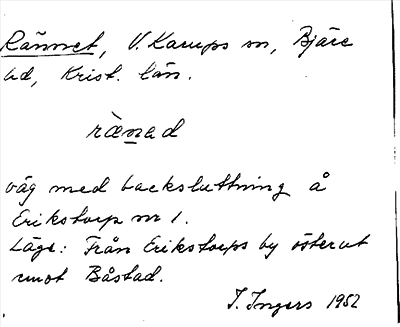 Rännet, V. Karups sn, Bjäre
hd, Krist. län.
rä̀nad
väg med backsluttning å
Erikstorp nr 1.
Läge: Från Erikstorps by österut
mot Båstad.
I. Ingers 1952